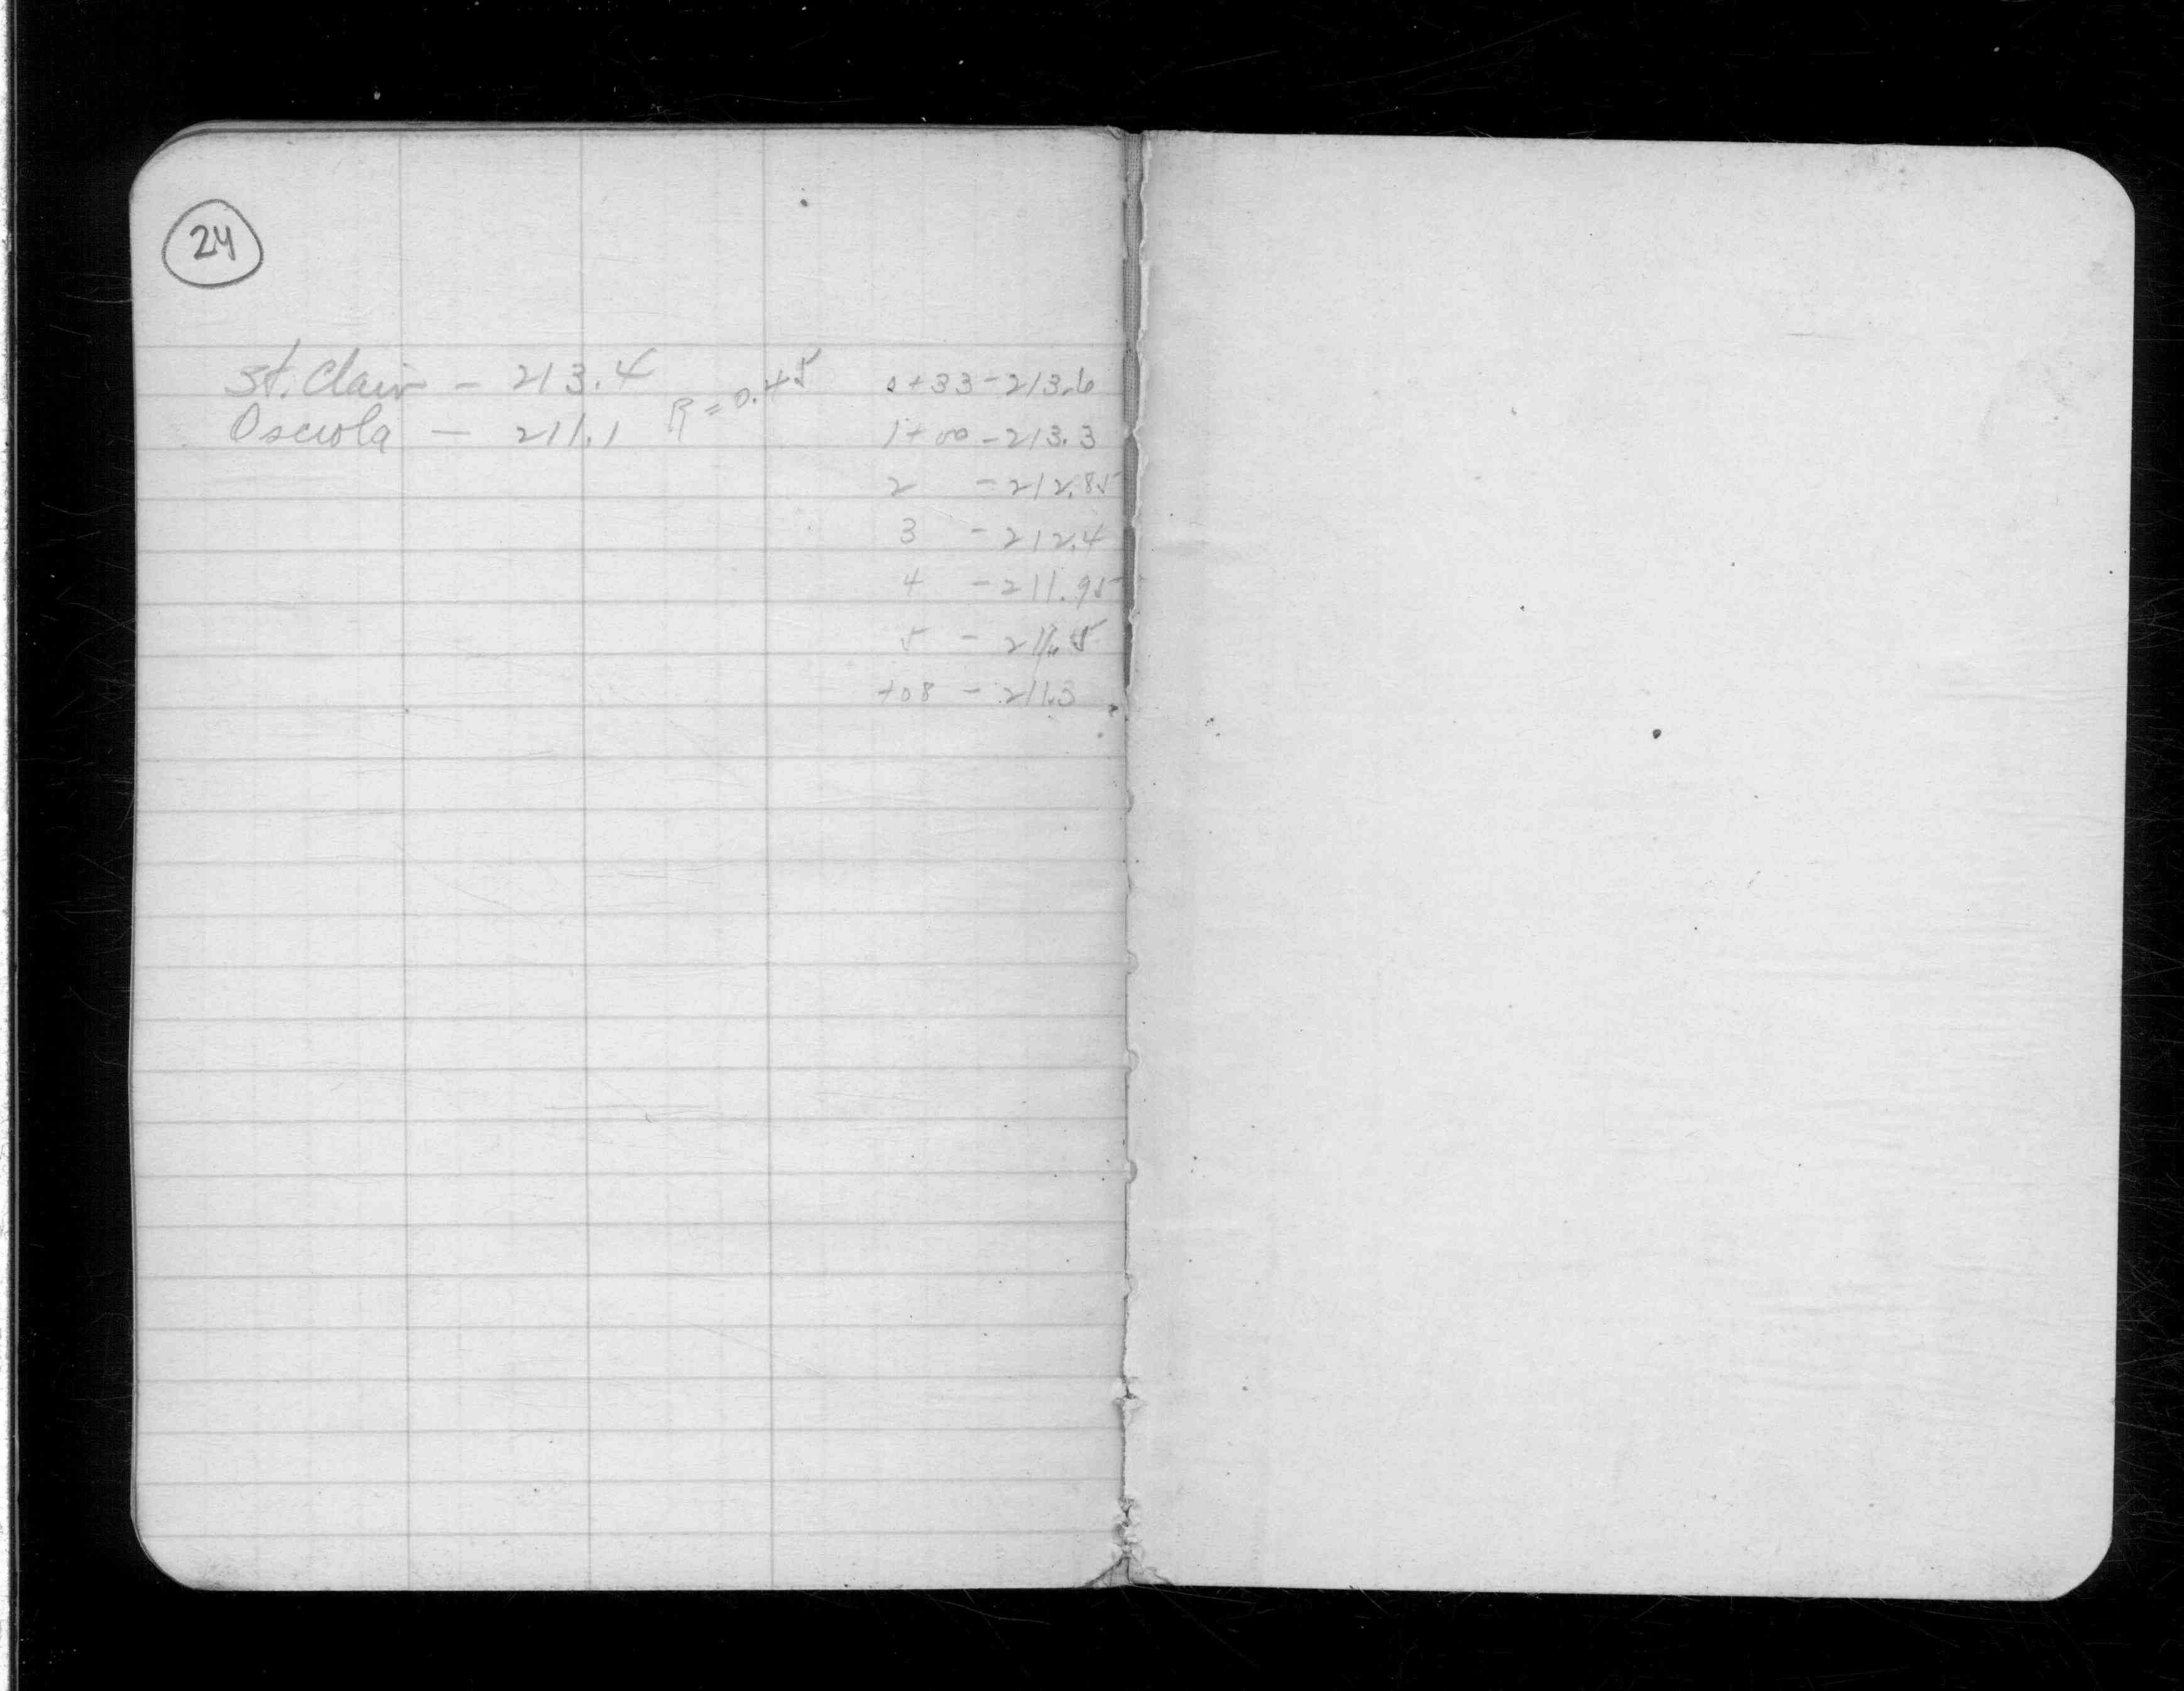 24
St. Clair - 213.4
Osceola - 211.1
R = 0.45
0+33 - 213.6
1+00 - 213.3
2 - 212.85
3 - 212.4
4 - 211.95
5 -
+08 - 211.3